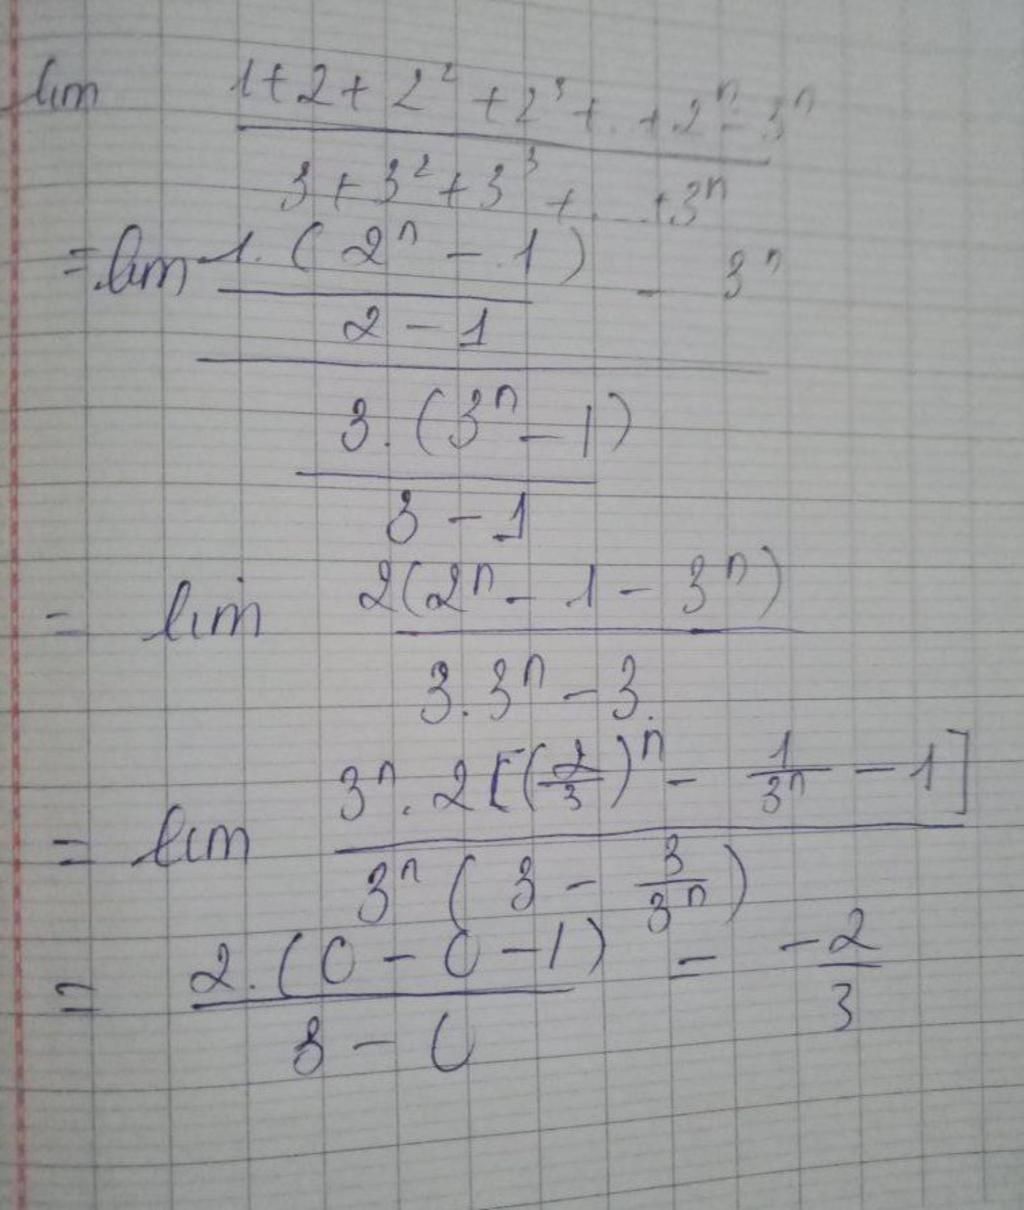 lim (1+2+2²+2³+..+2ⁿ-3ⁿ)/(3+3²+3³+...+3ⁿ)
= lim ((1.(2ⁿ-1))/(2-1) - 3ⁿ)/((3.(3ⁿ-1))/(3-1))
= lim (2(2ⁿ-1-3ⁿ))/(3.3ⁿ-3)
= lim (3ⁿ.2[(2/3)ⁿ - 1/3ⁿ - 1])/(3ⁿ(3 - 3/3ⁿ))
= (2.(0-0-1))/(3-0) = -2/3